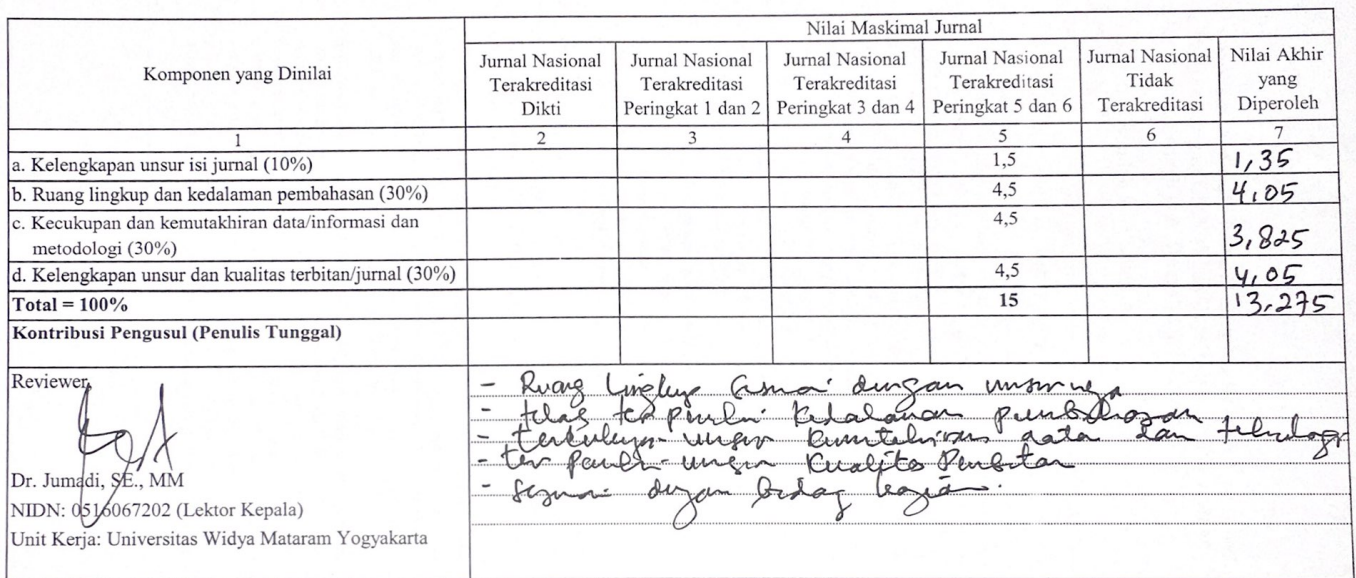 Komponen yang Dinilai
Nilai Maskimal Jurnal
Jurnal Nasional Terakreditasi Dikti
Jurnal Nasional Terakreditasi Peringkat 1 dan 2
Jurnal Nasional Terakreditasi Peringkat 3 dan 4
Jurnal Nasional Terakreditasi Peringkat 5 dan 6
Jurnal Nasional Tidak Terakreditasi
Nilai Akhir yang Diperoleh
1 2 3 4 5 6 7
a. Kelengkapan unsur isi jurnal (10%) 1,5 1,35
b. Ruang lingkup dan kedalaman pembahasan (30%) 4,5 4,05
c. Kecukupan dan kemutakhiran data/informasi dan
metodologi (30%) 4,5 3,825
d. Kelengkapan unsur dan kualitas terbitan/jurnal (30%) 4,5 4,05
Total = 100% 15 13,275
Kontribusi Pengusul (Penulis Tunggal)
Reviewer,
Dr. Jumadi, SE., MM
NIDN: 0516067202 (Lektor Kepala)
Unit Kerja: Universitas Widya Mataram Yogyakarta
- Ruang lingkup sesuai dengan unsurnya
- telah terpenuhi kedalaman pembahasan
- unsur data dan
- unsur kualitas
- sesuai dengan bidang